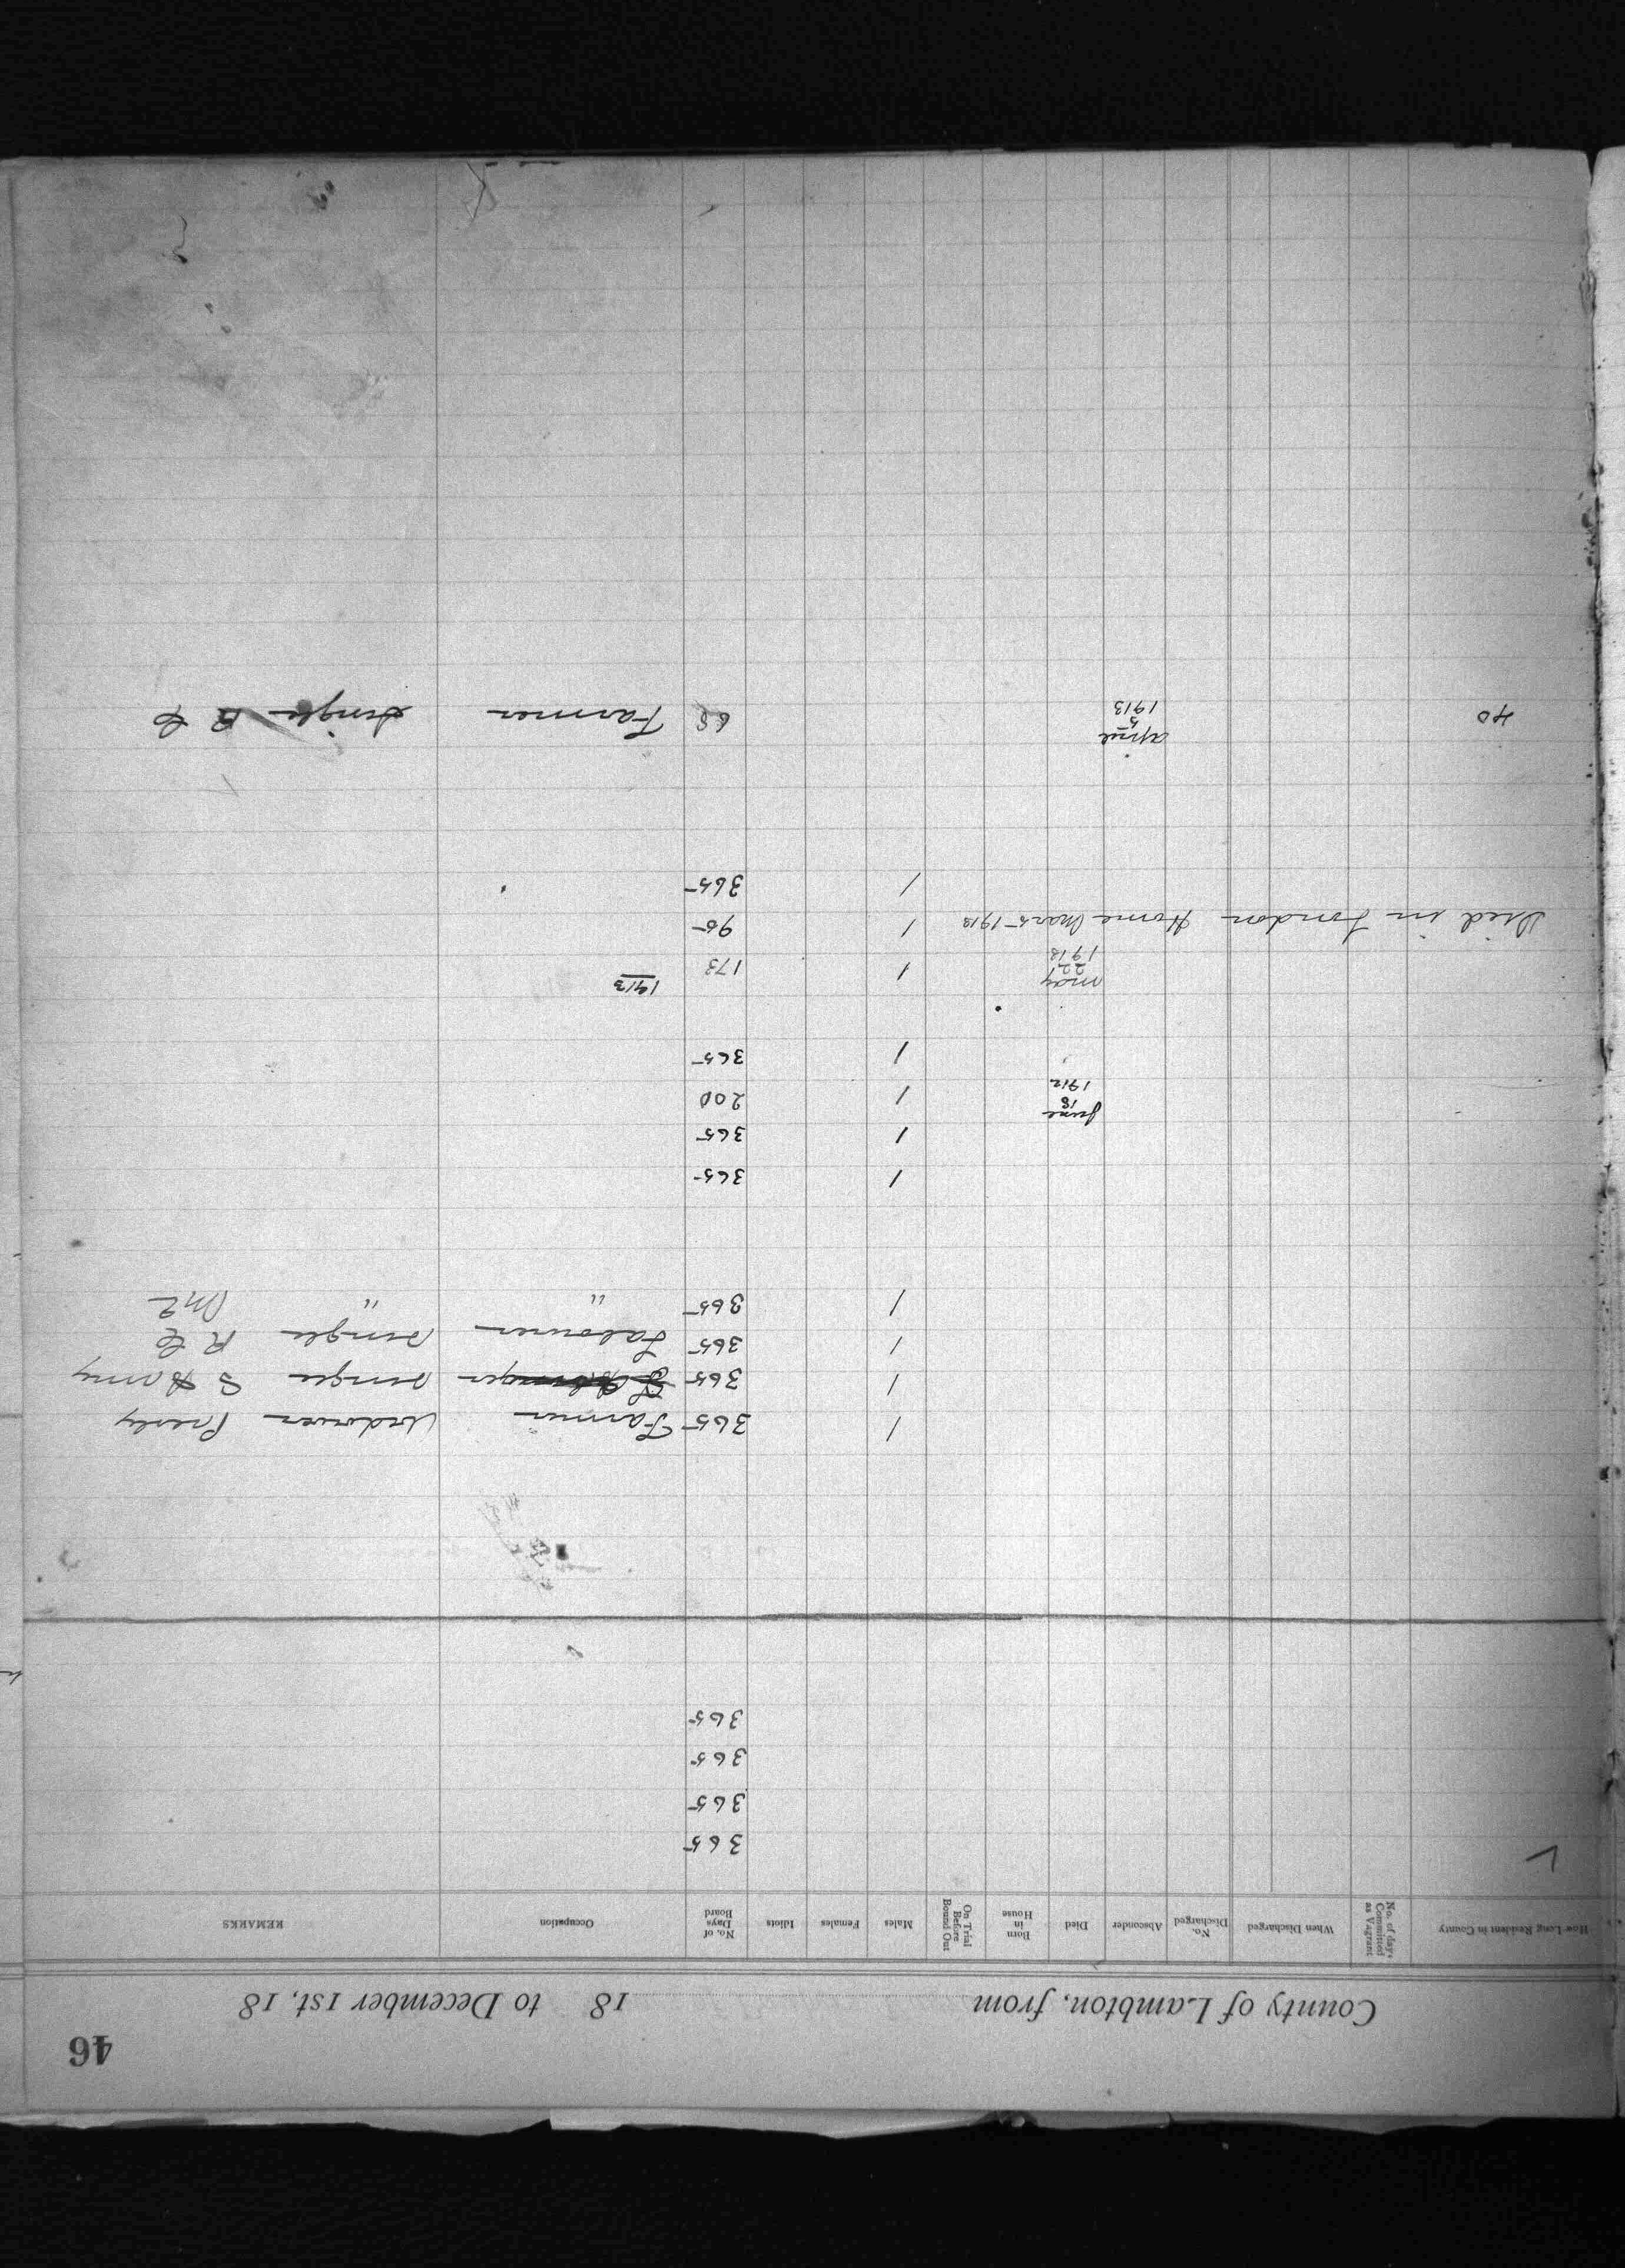 46
County of Lambton, from 18 to December 1st, 18
How Long Resident in County | No. of days Committed as Vagrant | When Discharged | No. Discharged | Absconder | Died | Born in House | On Trial Before Bound Out | Males | Females | Idiots | No. of Days Board | Occupation | REMARKS
365
365
365
365
1 365 Farmer Widower Presby
1 365 single S Army
1 365 Labourer single R C
1 365 " "
1 365
1 365
June 18 1912 1 200
1 365
1913
May 22 1913 1 173
Died in London Home Mar 5 1913 1 95
1 365
40 April 5 1913 68 Farmer Single R C